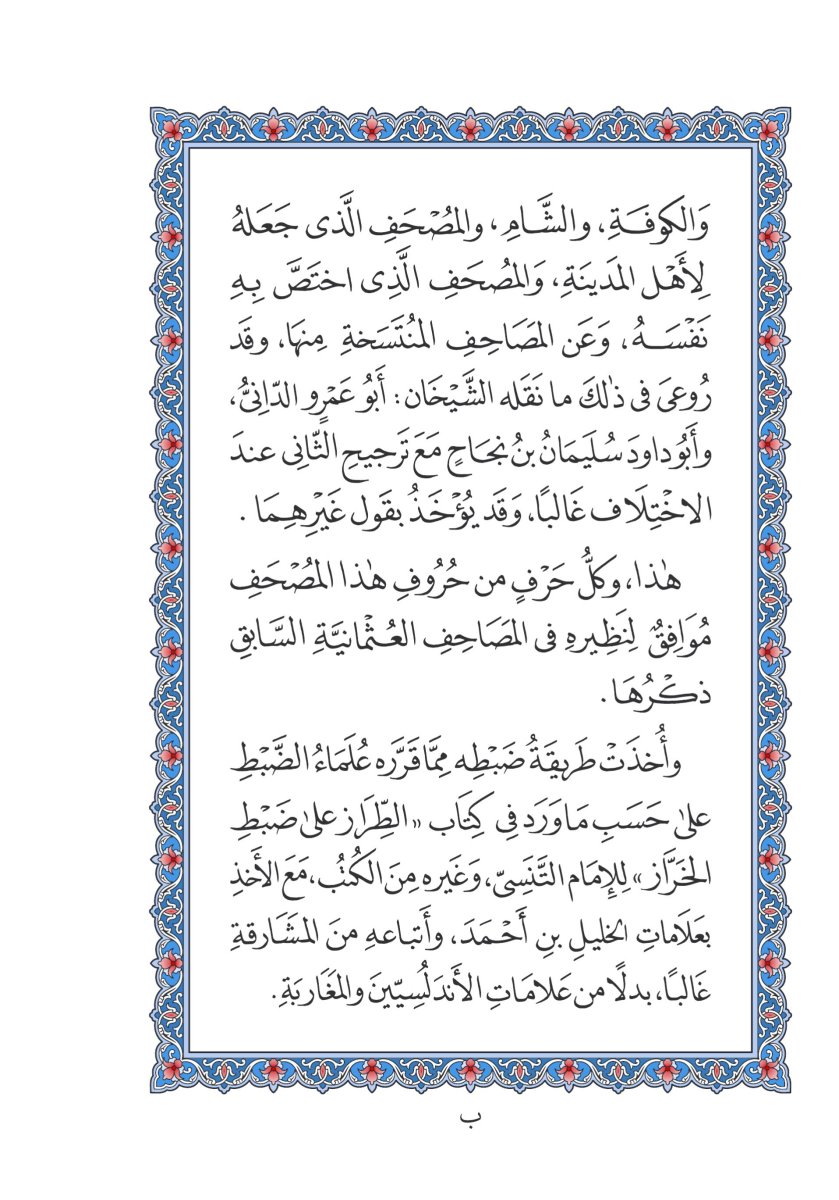 وَالكوفَةِ، والشَّامِ، والمُصْحَفِ الَّذى جَعَلهُ
لِأَهْل المَدينَةِ، وَالمُصْحَفِ الَّذِى اختَصَّ بِهِ
نَفْسَهُ، وَعَن المَصَاحِفِ المُنتَسَخةِ مِنهَا، وقَد
رُوعىَ فى ذٰلكَ ما نَقَله الشَّيْخَان: أَبُو عَمْرٍو الدّانِىُّ،
وأَبُو داودَ سُلَيمَانُ بنُ نجَاحٍ مَعَ تَرجيحِ الثّانِى عندَ
الاخْتِلَاف غَالبًا، وَقَد يُؤْخَذُ بقَول غَيْرِهِمَا.
هٰذا، وَكلُّ حَرْفٍ من حُرُوفِ هٰذا المُصْحَفِ
مُوَافِقٌ لِنَظِيرهِ فى المَصَاحِفِ العُثْمانيَّةِ السَّابقِ
ذكْرُهَا.
وأُخذَتْ طَريقَةُ ضَبْطِه مِمَّا قَرَّرَه عُلَمَاءُ الضَّبْطِ
علىٰ حَسَبِ مَا وَرَد فِى كِتَاب «الطِّرَاز علىٰ ضَبْطِ
الخَرَّاز» لِلإِمَام التَّنَسِىّ، وَغَيره مِنَ الكُتُب، مَعَ الأَخذِ
بعَلَاماتِ الخَليلِ بنِ أَحْمَدَ، وأَتباعهِ منَ المشَارقةِ
غَالبًا، بدلًا من عَلامَاتِ الأَندَلُسِيّينَ والمَغَاربَةِ.
ب